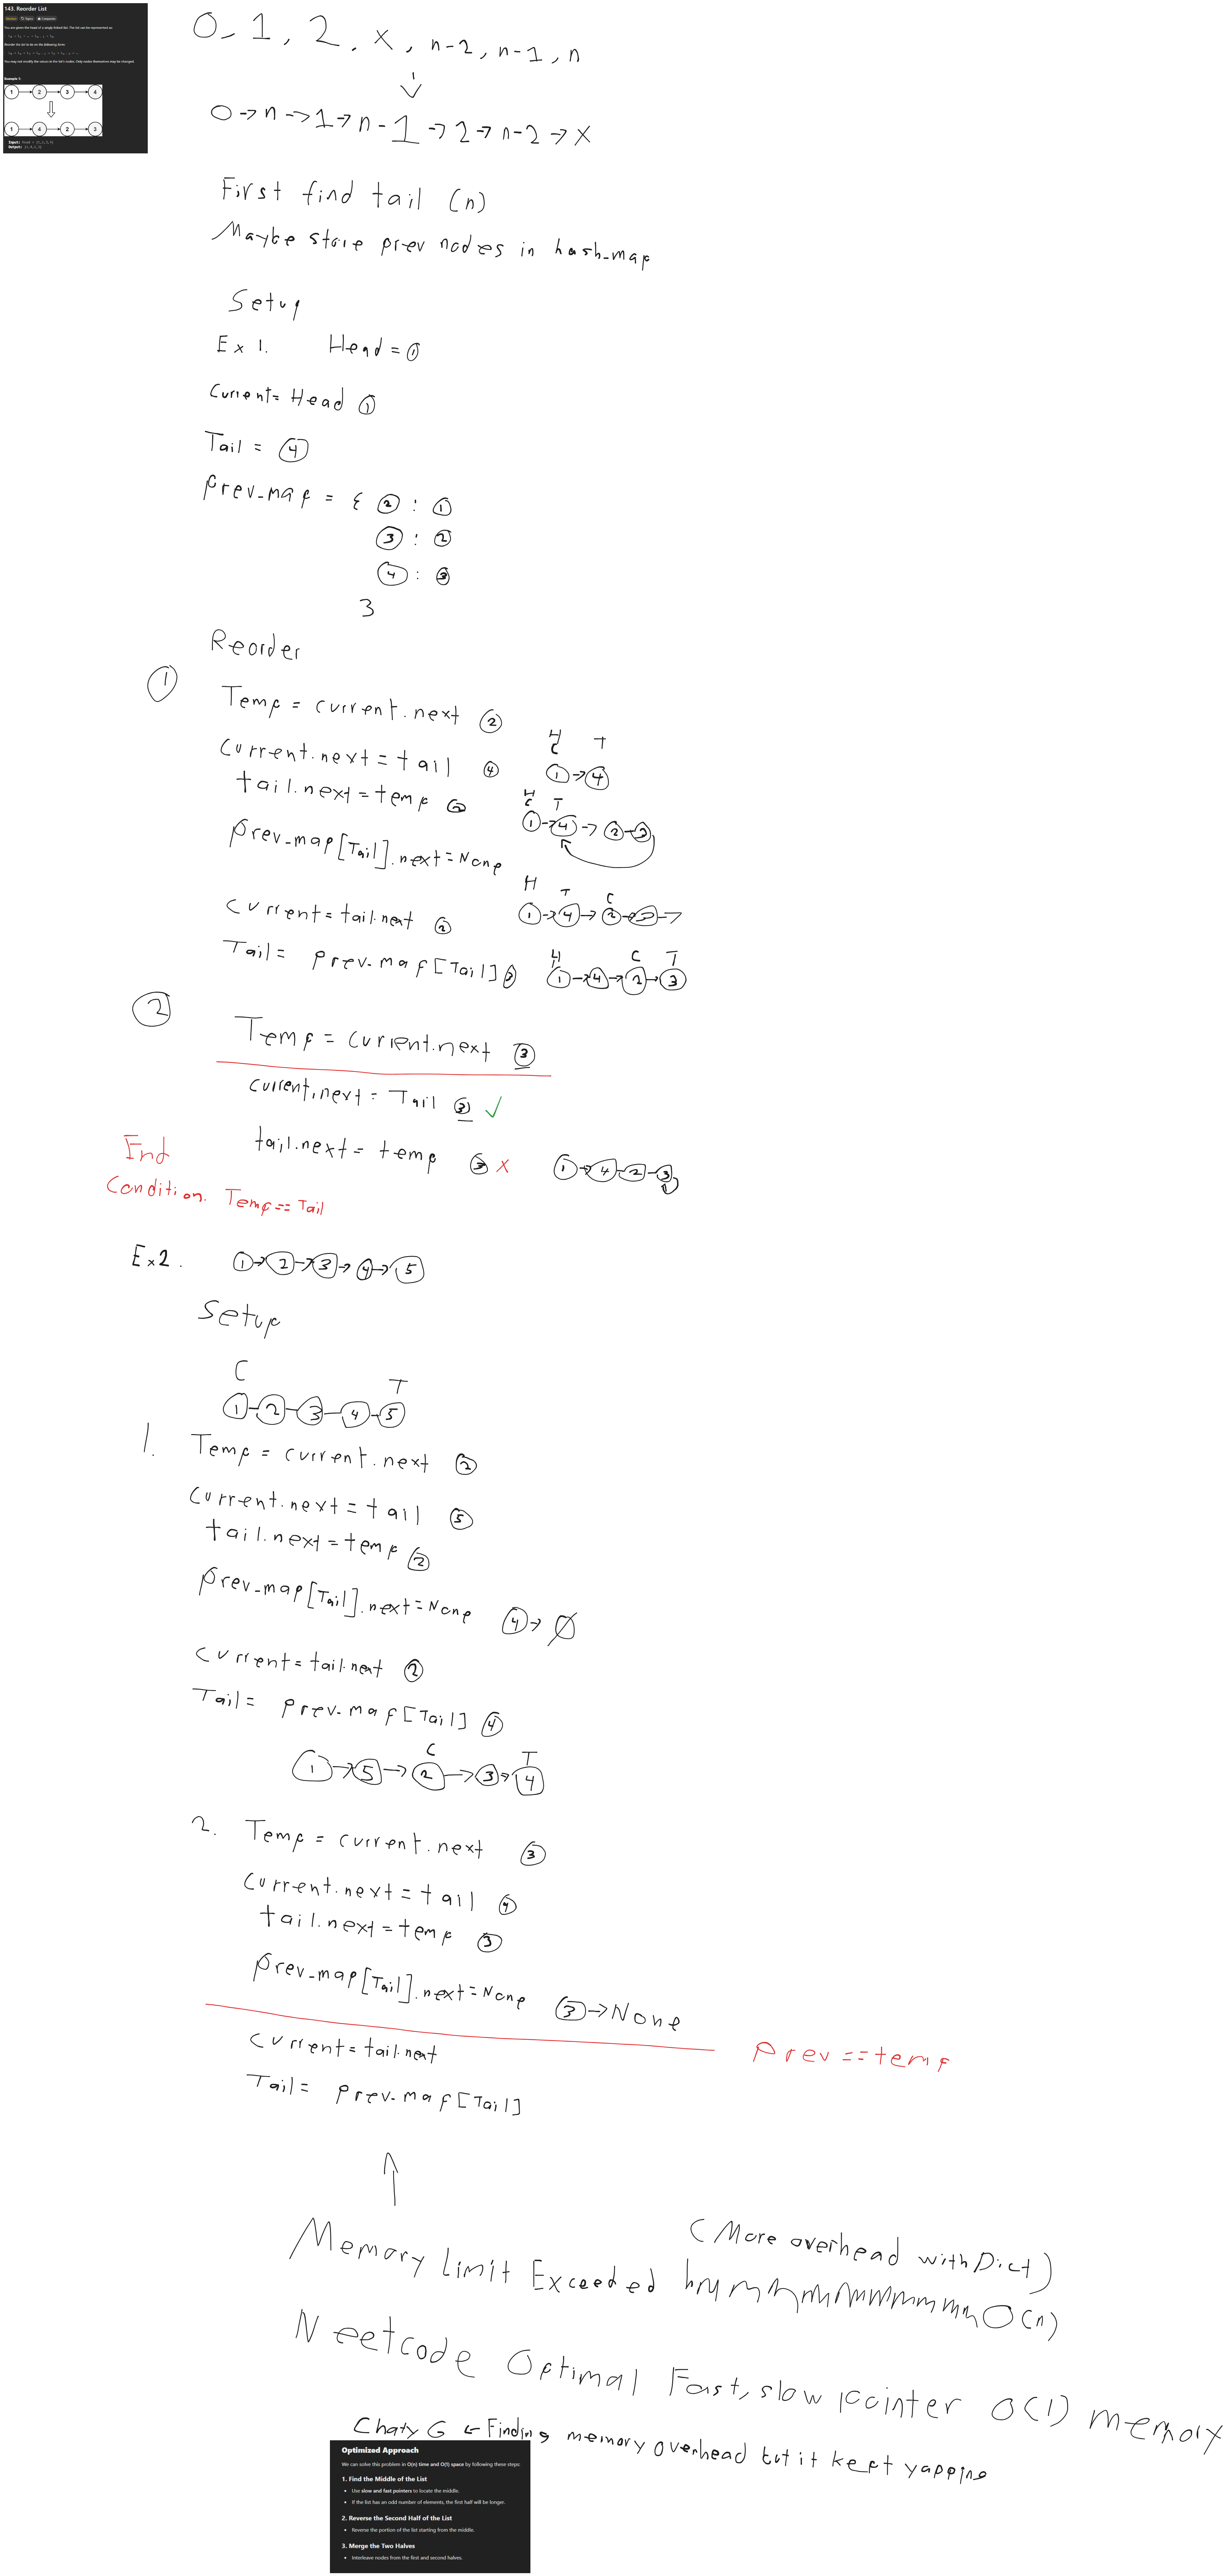 143. Reorder List
Medium Topics Companies
You are given the head of a singly linked-list. The list can be represented as:
Reorder the list to be on the following form:
You may not modify the values in the list's nodes. Only nodes themselves may be changed.
Example 1:
1 2 3 4
1 4 2 3
Input: head = [1,2,3,4]
Output: [1,4,2,3]
0, 1, 2, x, n-2, n-1, n
0 → n → 1 → n-1 → 2 → n-2 → x
First find tail (n)
Maybe store prev nodes in hash_map
Setup
Ex 1. Head = ①
Current = Head ①
Tail = ④
Prev_map = { ② : ①
③ : ②
④ : ③
}
Reorder
①
Temp = current.next ②
H
C T
current.next = tail ④ ① → ④
tail.next = temp ②
H
C T
① → ④ → ② - ③
prev_map[Tail].next = None
H T C
current = tail.next ② ① → ④ → ② → ③ →
H C T
Tail = prev_map[Tail] ③ ① → ④ → ② → ③
②
Temp = current.next ③
current.next = Tail ③ ✓
tail.next = temp ③ x ① → ④ - ② - ③
End
Condition. Temp == Tail
Ex 2. ① → ② → ③ → ④ → ⑤
Setup
C T
① - ② - ③ - ④ - ⑤
1. Temp = current.next ②
current.next = tail ⑤
tail.next = temp ②
prev_map[Tail].next = None ④ → Ø
current = tail.next ②
Tail = prev_map[Tail] ④
C T
① → ⑤ → ② → ③ → ④
2. Temp = current.next ③
current.next = tail ④
tail.next = temp ③
prev_map[Tail].next = None ③ → None
prev == temp
current = tail.next
Tail = prev_map[Tail]
↑
(More overhead with Dict)
Memory Limit Exceeded hmmmmmmmmmmmm O(n)
Neetcode Optimal Fast, slow pointer O(1) memory
Chaty G ← Finding memory overhead but it kept yapping
Optimized Approach
We can solve this problem in O(n) time and O(1) space by following these steps:
1. Find the Middle of the List
• Use slow and fast pointers to locate the middle.
• If the list has an odd number of elements, the first half will be longer.
2. Reverse the Second Half of the List
• Reverse the portion of the list starting from the middle.
3. Merge the Two Halves
• Interleave nodes from the first and second halves.